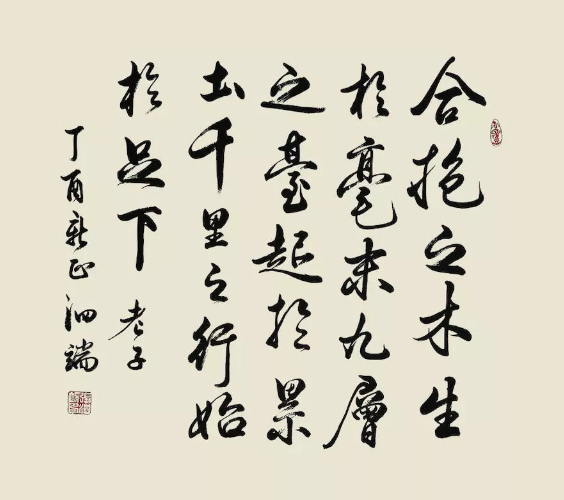 合抱之木生
於毫末九層
之臺起於累
土千里之行始
於足下 老子
丁酉新正泗端